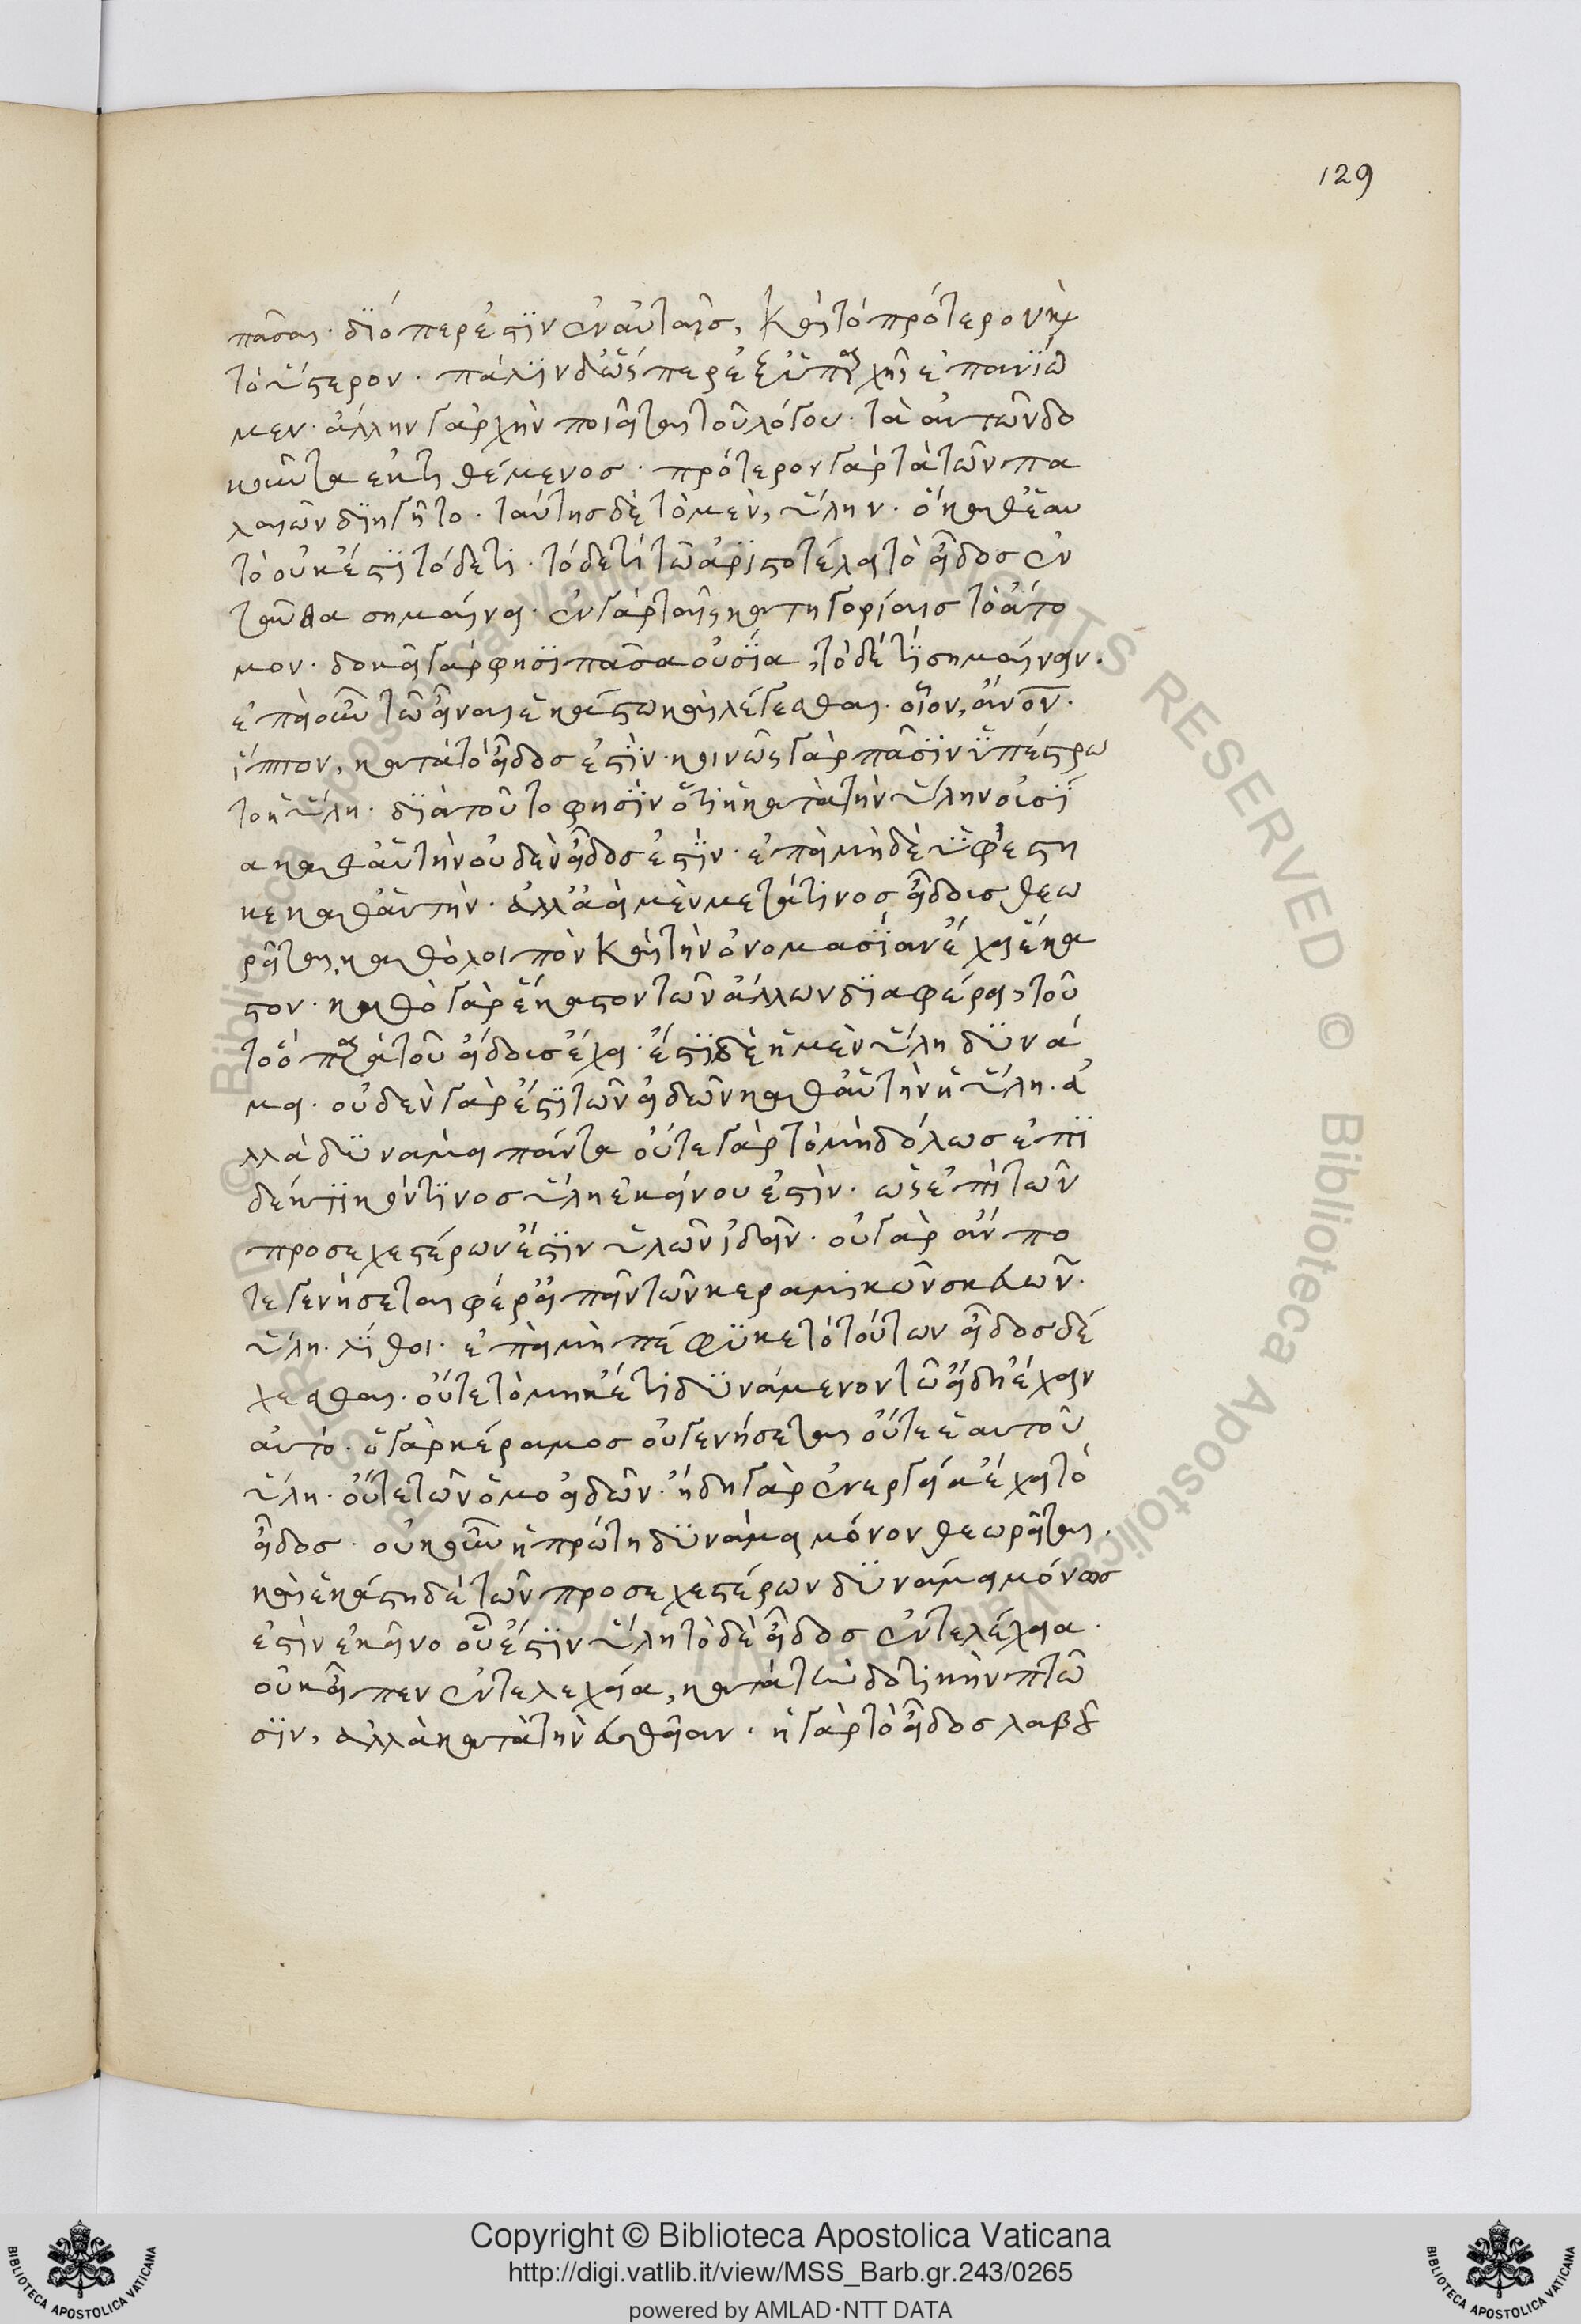 129
πᾶσαι· διόπερ ἐστὶν ἐν αὐταῖς, καὶ τὸ πρότερον καὶ
τὸ ὕστερον· πάλιν δ' ὥσπερ ἐξ ὑπαρχῆς ἐπανίω
μεν· ἄλλην γ' ἀρχὴν ποιεῖται τοῦ λόγου· τὰ αὐτῶν δο
κοῦντα ἐκτιθέμενος· πρότερον γὰρ τὰ τῶν πα
λαιῶν διηγῆτο· ταύτης δὲ τὸ μὲν, ὕλην· ὃ καθ' ἑαυ
τὸ οὐκ ἔστι τόδε τι· τόδε τί τῶ ἀριστοτέλει τὸ εἶδος ἐν
ταῦθα σημαίνει· ἐν γὰρ ταῖς κατηγορίαις τὸ ἄτο
μον· δοκεῖ γὰρ φησὶ πᾶσα οὐσία, τὸ δέ τι σημαίνειν.
ἐπεὶ οὖν τῶ εἶναι ἑκάστω καὶ λέγεσθαι· οἷον, ἄνον·
ἵππον, κατὰ τὸ εἶδος ἐστὶν· κοινῶς γὰρ πᾶσιν ὑπέστρω
το ἡ ὕλη· διὰ τοῦτο φησὶν ὅτι ἡ κατὰ τὴν ὕλην οὐσί
α καθ' αὑτὴν οὐδὲν εἶδος ἐστὶν· ἐπεὶ μηδὲ ὑφέστη
κε καθ' αὑτήν· ἀλλ' ἀεὶ μὲν μετά τινος εἴδους θεω
ρεῖται, καθόλοι πὸν καὶ τὴν ὀνομασίαν ἔχει ἕκα
στον· καθὸ γὰρ ἕκαστον τῶν ἄλλων διαφέρει, τοῦ
το ὃ παρὰ τοῦ εἴδους ἔχει· ἔστι δὲ ἡ μὲν ὕλη δυνά
μει· οὐδὲν γὰρ ἐστὶ τῶν εἰδῶν καθ' αὑτὴν ἡ ὕλη· ἀ
λλὰ δυνάμει πάντα οὔτε γὰρ τὸ μηδόλως ἐπι
δεκτικόν τινος ὕλη ἐκείνου ἐστὶν· ὡς ἐπὶ τῶν
προσεχεστέρων ἐστὶν ὑλῶν ἰδεῖν· οὐ γὰρ ἄν πο
τε γενήσεται φέρ' εἰπεῖν τῶν κεραμικῶν σκευῶν·
ὕλη· λίθοι· ἐπεὶ μὴ πέφυκε τὸ τούτων εἶδος δέ
χεσθαι· οὔτε τὸ μηκέτι δυνάμενον τῶ ἤδη ἔχειν
αὐτό· ὁ γὰρ κέραμος οὐ γενήσεται οὔτε ἑαυτοῦ
ὕλη· οὔτε τῶν ὁμοειδῶν· ἤδη γὰρ ἐνεργείᾳ ἔχει τὸ
εἶδος· οὐκοῦν ἡ πρώτη δυνάμει μόνον θεωρεῖται·
καὶ ἑκάστη δὲ τῶν προσεχεστέρων δυνάμει μόνως
ἐστὶν ἐκεῖνο οὗ ἐστὶν ὕλη τὸ δὲ εἶδος ἐντελέχεια·
οὐκ εἶπεν ἐντελεχείᾳ, κατὰ τὴν δοτικὴν πτῶ
σιν, ἀλλὰ κατὰ τὴν εὐθεῖαν· ἡ γὰρ τὸ εἶδος λαβοῦ
Copyright © Biblioteca Apostolica Vaticana
http://digi.vatlib.it/view/MSS_Barb.gr.243/0265
powered by AMLAD·NTT DATA
BIBLIOTECA APOSTOLICA VATICANA
BIBLIOTECA APOSTOLICA VATICANA